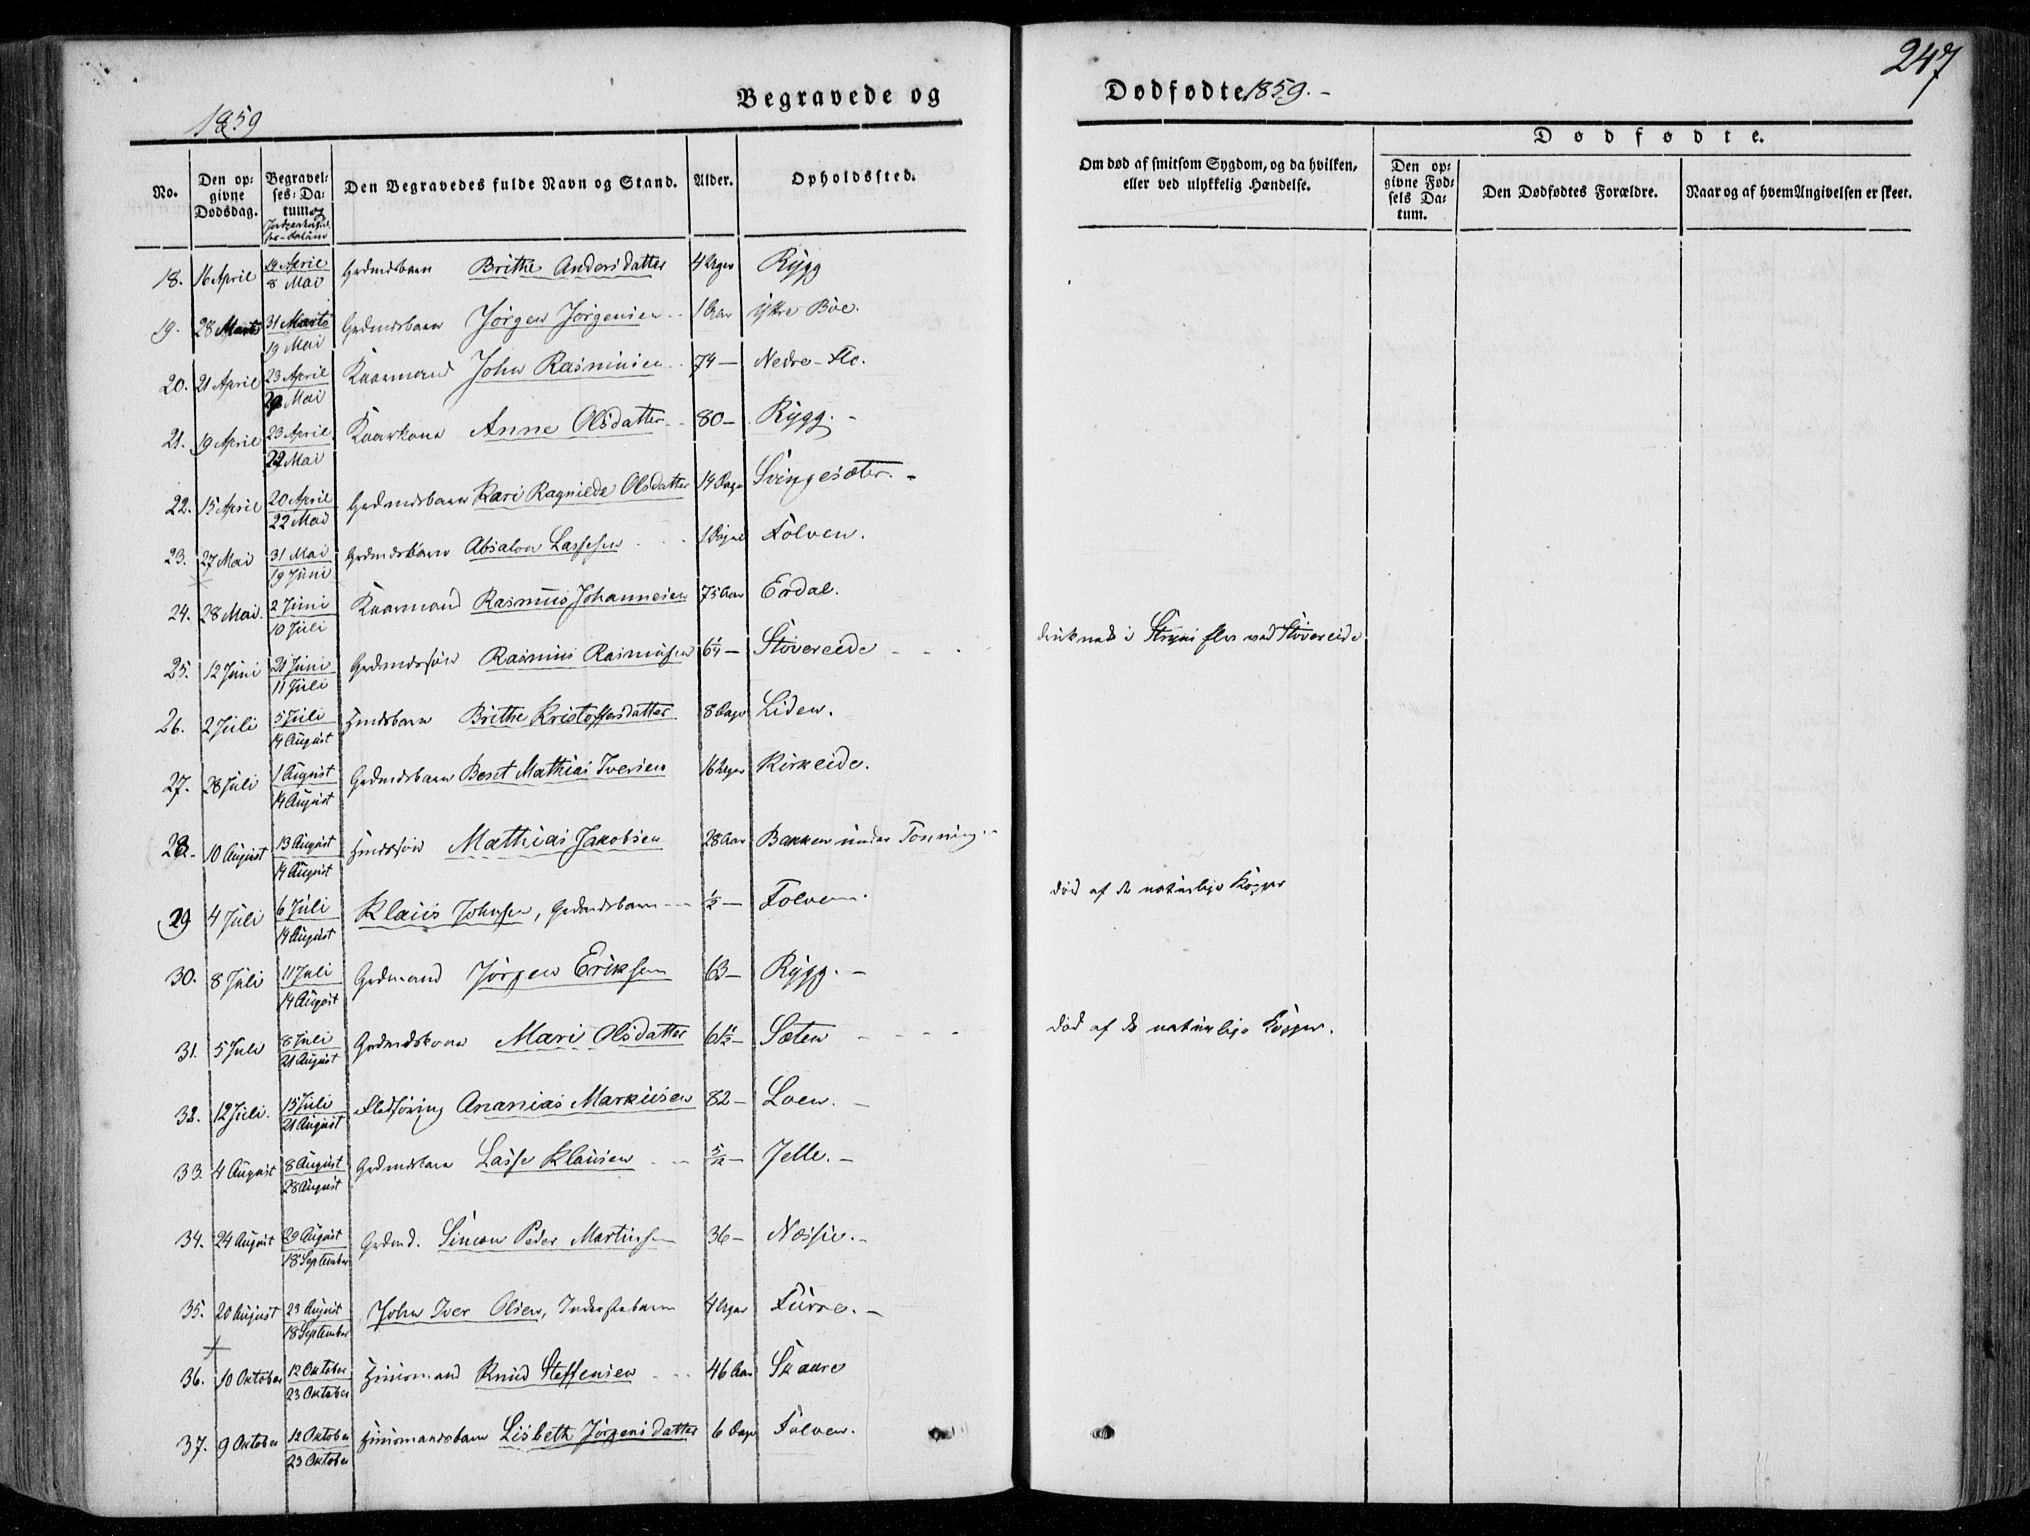 247
1859
Begravede og
Dødfødte 1859.-
No.
Den opgivne Dødsdag.
Begravelses-Datum og Jordpaakastelses-datum
Den Begravedes fulde Navn og Stand.
Alder.
Opholdssted.
Om død af smitsom Sygdom, og da hvilken, eller ved ulykkelig Hændelse.
Dødfødte.
Den opgivne Fødsels Datum.
Den Dødfødtes Forældre.
Naar og af hvem Angivelsen er skeet.
18. 16 April 19 April 8 Mai Grdmdsbarn Brithe Andersdatter 4 Uger Rygg
19. 28 Marts 31 Marts 19 Mai Grdmdsbarn Jørgen Jørgensen 1 Aar ystre Böe.
20. 21 April 23 April 29 Mai Kaarmand John Rasmusen 74 — Nedre-Flo.
21. 19 April 23 April 22 Mai Kaarkone Anne Olsdatter 80 — Rygg.-
22. 15 April 20 April 22 Mai Grdmdsbarn Kari Ragnilde Olsdatter 14 Dage Svingesæter.-
23. 27 Mai 31 Mai 19 Juni Grdmdsbarn Absalon Lassesen 1 Døgn Folven.
24. 28 Mai. 2 Juni 10 Juli Kaarmand Rasmus Johannesen 75 Aar Erdal.
25. 12 Juni 21 Juni 11 Juli Grdmdssøn Rasmus Rasmusen 6¼ — Støvereide - - - druknede i Stryns elv ved Støvereide
26. 2 Juli 5 Juli 14 August Hmdsbarn Brithe Kristoffersdatter 8 Dage Liden.
27. 28 Juli 1 August 14 August Grdmdsbarn Bent Mathias Iversen 16 Uger Kirkeide.
28. 10 August 13 August 14 August Hmdssøn Mathias Jakobsen 28 Aar Bakken under Tonning.-
29 4 Juli 6 Juli 14 August Klaus Johnsen, Grdmdsbarn ½ — Folven. død af de naturlige Kopper
30. 8 Juli 11 Juli 14 August Grdmand Jørgen Eriksen 63 — Rygg.-
31. 5 Juli 8 Juli 21 August Grdmdskone Mari Olsdatter 61½ — Sæten - - - - død af de naturlige Kopper.
32. 12 Juli. 15 Juli 21 August Fladføring Ananias Markusen 82 — Loen.-
33. 4 August 8 August 28 August Grdmdsbarn Lasse Klausen 5/12 — Jelle.-
34. 24 August 29 August 18 September Grdmd. Simon Peder Martinsen 36 — Næssie.-
35. 20 August 23 August 18 September John Iver Olsen, Inderstebarn 4 Uger Furre.-
36. 10 Oktober 12 Oktober 23 Oktober Huusmand Knud Steffensen 46 Aar Skaare
37. 9 Oktober 12 Oktober 23 Oktober Huusmandsbarn Lisbeth Jørgensdatter 6 Dage Folven.